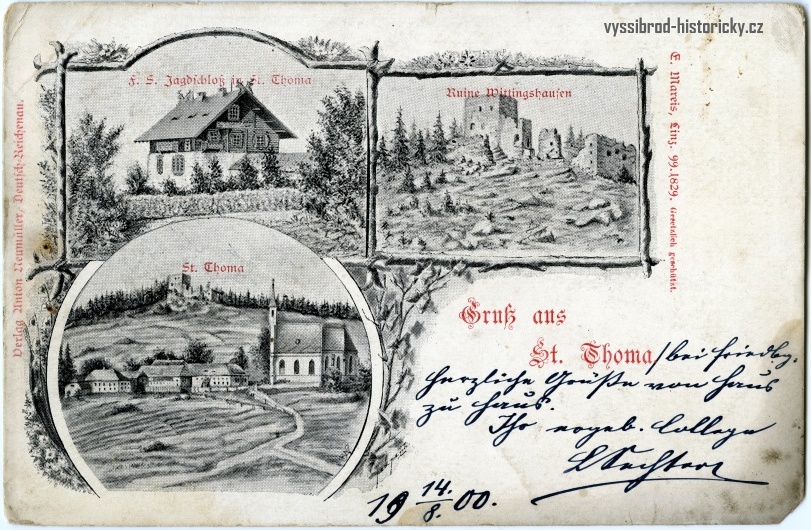 vyssibrod-historicky.cz
F. S. Jagdschloß in St. Thoma
Ruine Wittingshausen
St. Thoma
Verlag Anton Neumüller, Deutsch-Reichenau.
E. Mareis, Linz. 99.1829. Gesetzlich geschützt.
Gruß aus
St. Thoma / bei Friedbg.
herzliche Grüße von Haus
zu Haus.
Ihr ergeb. College
19 14./8. 00.